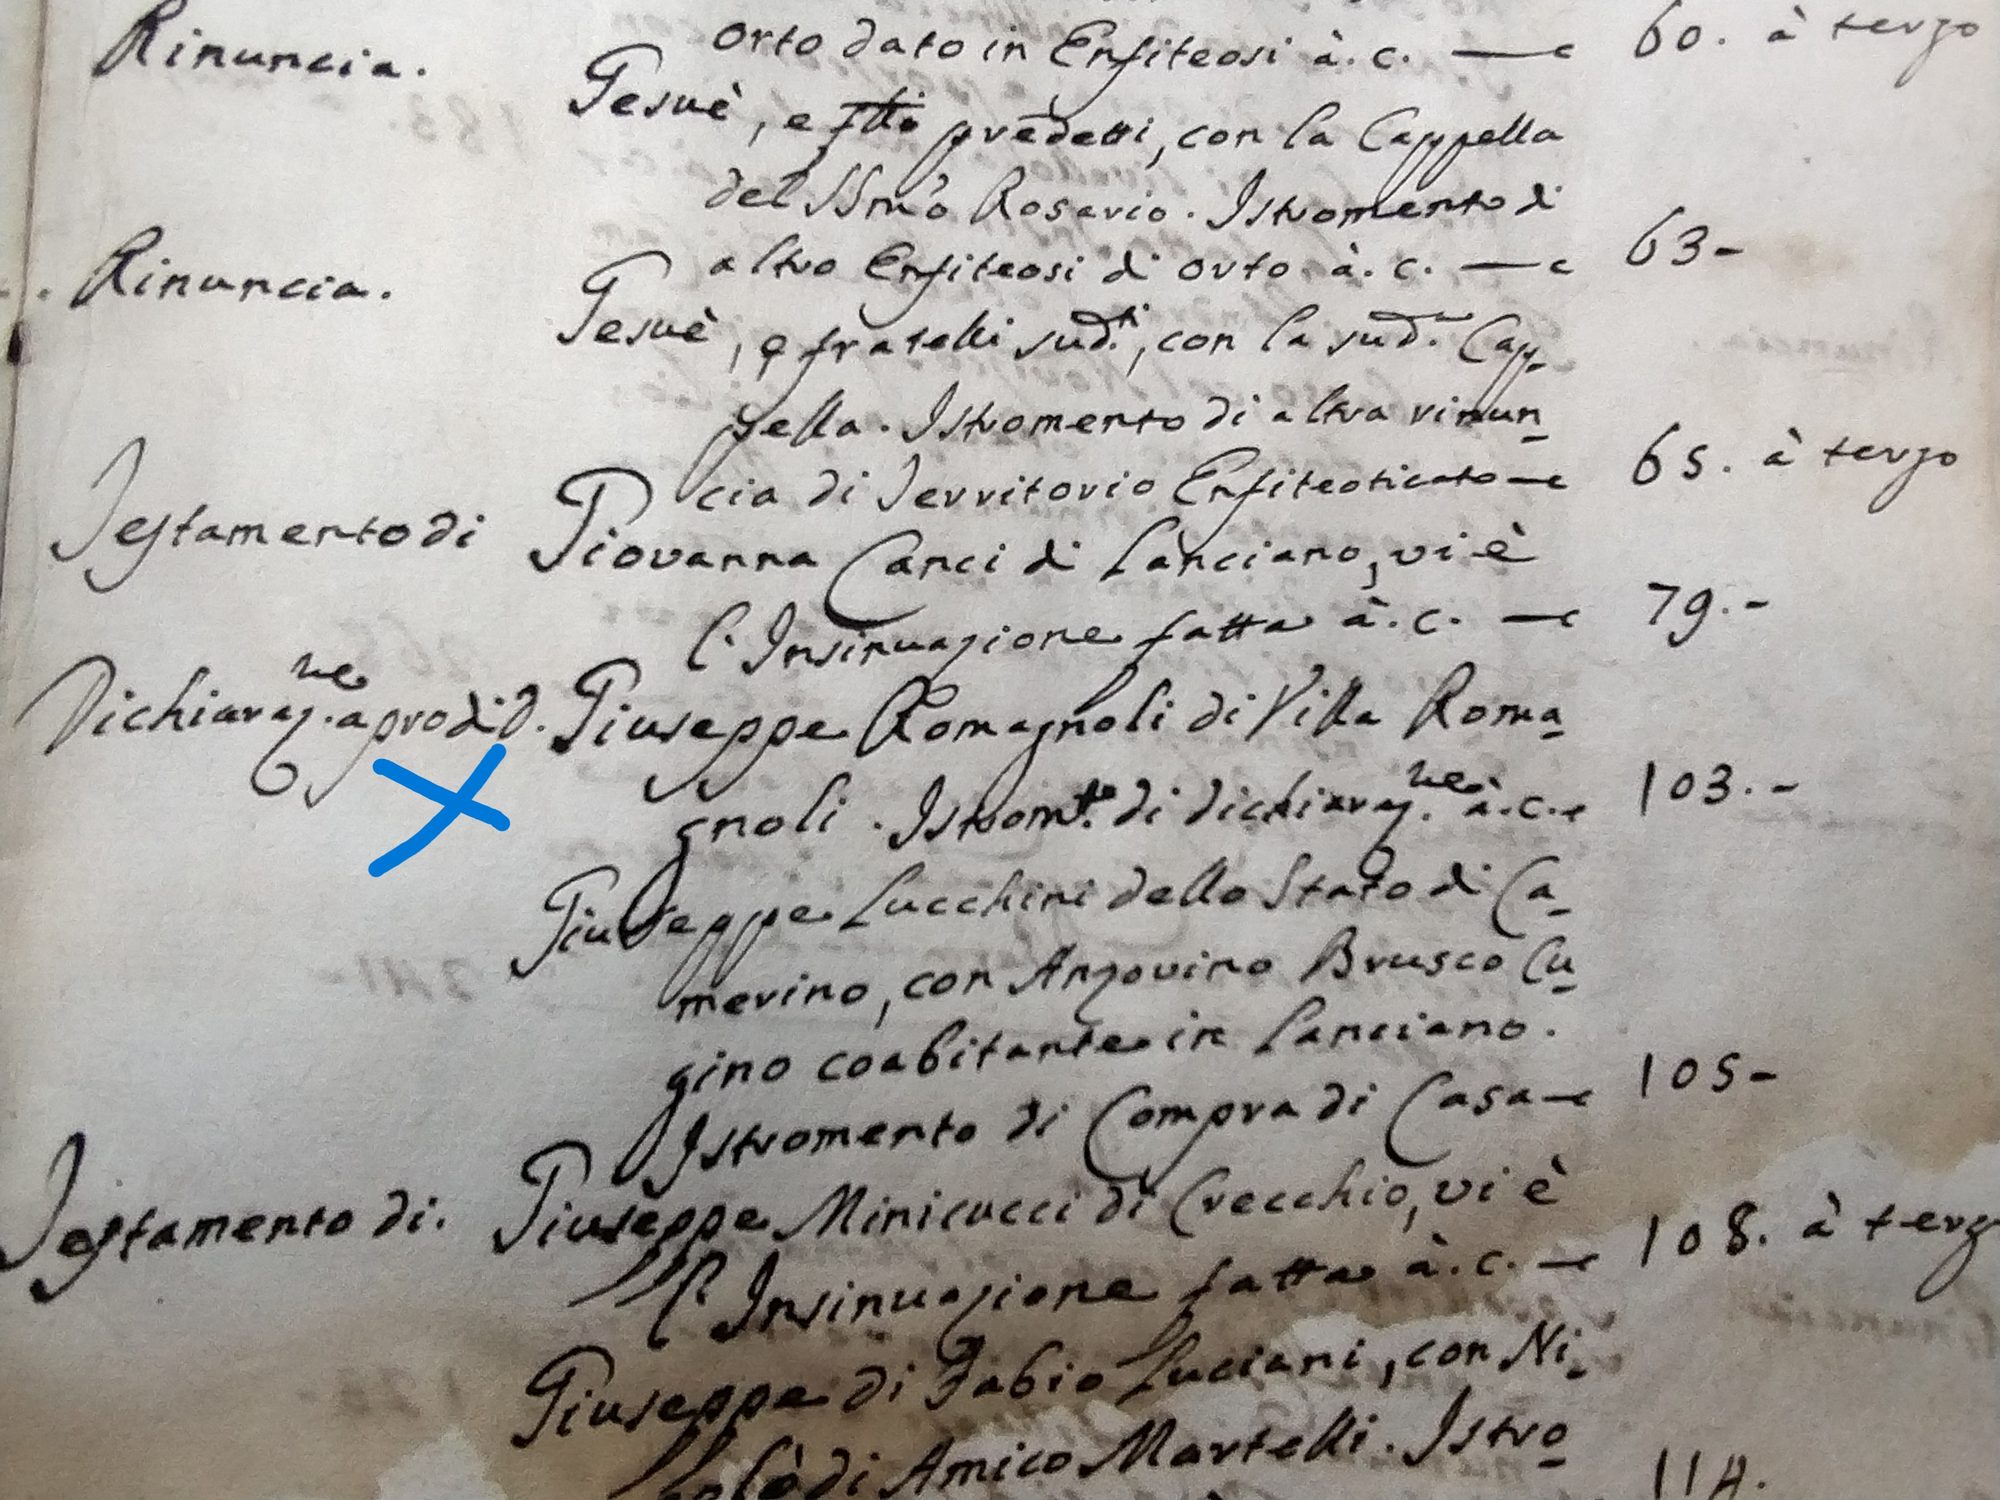 orto dato in Enfiteosi à. c. — 60. à tergo
Rinuncia. Gesuè, e flli predetti, con la Cappella
del SSmo Rosario. Istromento di
altro Enfiteosi di orto à. c. — 63-
Rinuncia. Gesuè, e fratelli sudti, con la sud. Cap-
pella. Istromento di altra rinun-
cia di Territorio Enfiteoticato — 65. à tergo
Testamento di Giovanna Canci di Lanciano, vi è
l'Insinuazione fatta à. c. — 79.-
Dichiaraz.ne a prò di D. Giuseppe Romagnoli di Villa Roma-
gnoli. Istromto. di dichiaraz.ne à. c. 103.-
Giuseppe Lucchini dello Stato di Ca-
merino, con Anzovino Brusco Cu-
gino coabitante in Lanciano.
Istromento di Compra di Casa — 105-
Testamento di. Giuseppe Minicucci di Crecchio, vi è
l'Insinuazione fatta à. c. — 108. à terg
Giuseppe di Fabio Luciani, con Ni-
colò di Amico Martelli. Istro-
114.